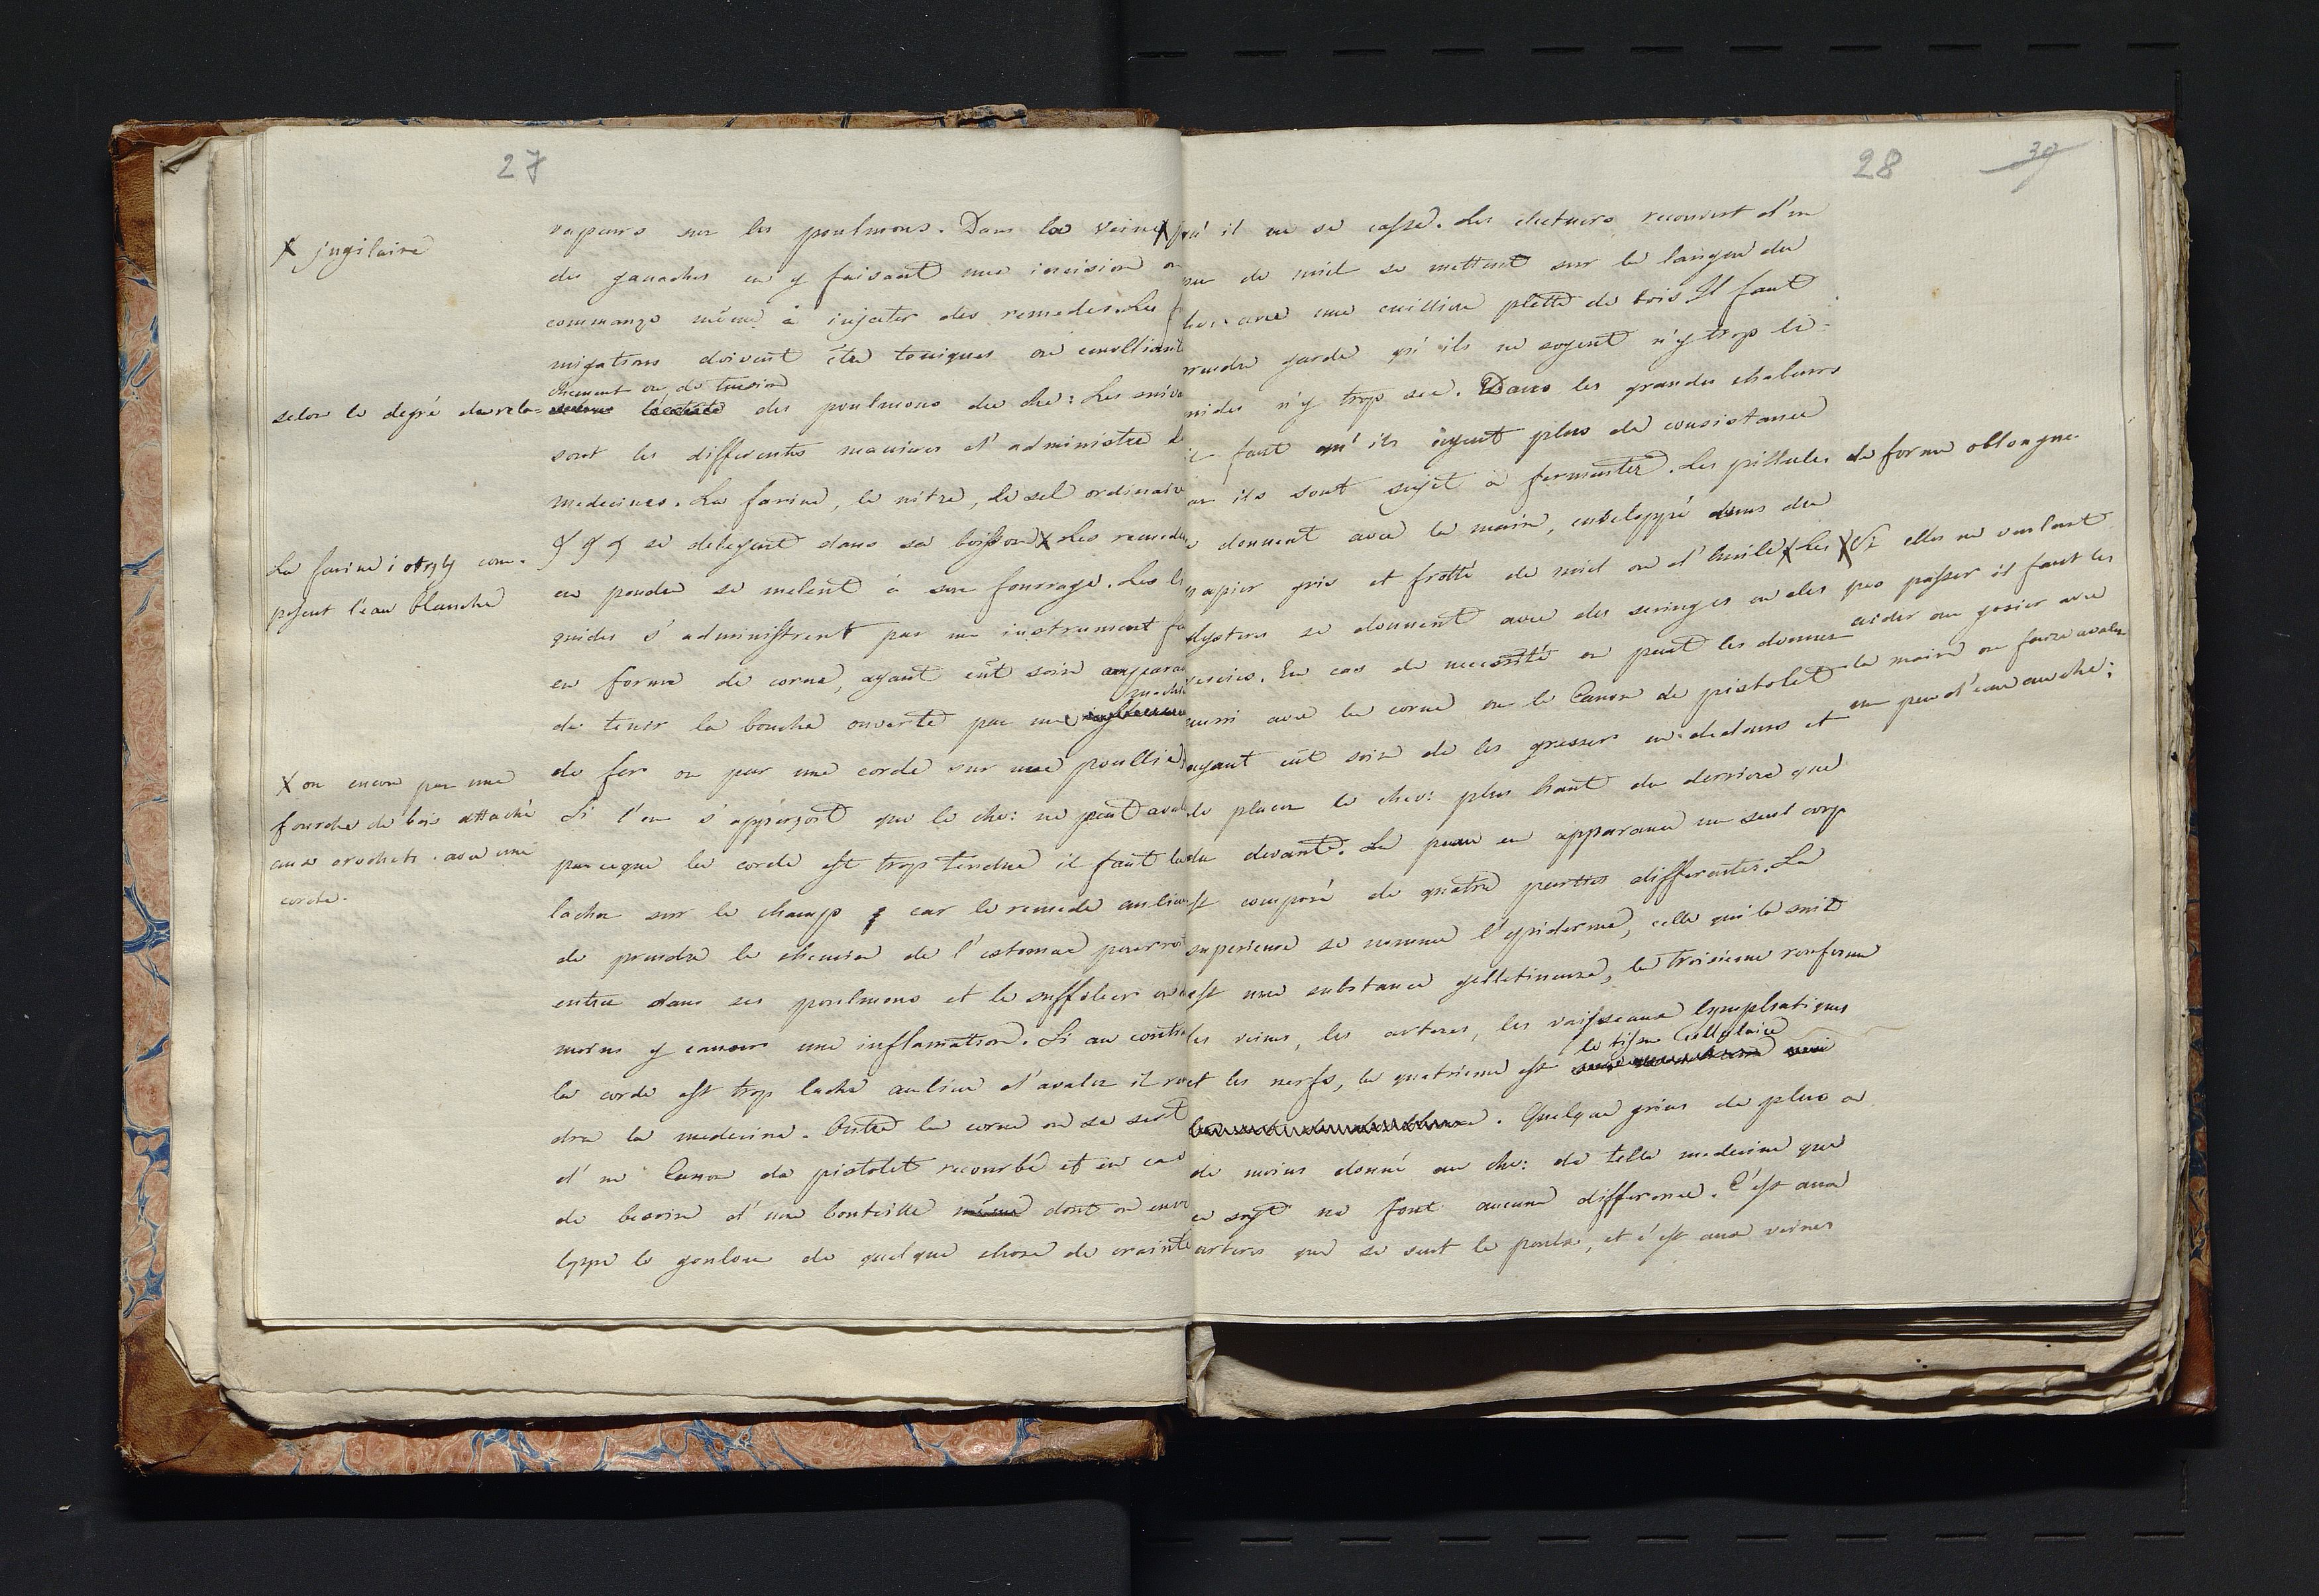 27
X jugilaire
vapeurs sur les poulmons. Dans la veine X
des ganaches en y faisant une incision on
commance même à injecter des remedes. Les f
migations doivent être toniques ou emolliant
chement ou de tension
selon le degré de rela- des poulmons du che: Les suiva
sont les differentes manieres d'administré l
medecines. La farine, le nitre, le sel ordinaire
se delayent dans sa boisson X Les remedes
La farine com-
posent l'eau blanche
en poudre se melent à son fourrage. Les li
quides s'administrent par un instrument fa
en forme de corne, ayant eüt soin auparav
de tenir la bouche ouverte par une
de fer ou par une corde sur une poullie
X ou encore par une
fourche de bois attaché
aux crochets avec une
corde.
Si l'on s'apperçoit que le che: ne peut aval
parceque la corde est trop tendue il faut la
lacher sur le champ car le remede aulieu
de prendre le chemin de l'estomac pourroit
entrer dans ses poulmons et le suffoluer ou
moins y causer une inflamation. Si au contra
la corde est trop lache aulieu d'avaler il re
dra la medecine. Outre la corne on se sert
d'un Canon de pistolet recourbé et en cas
de besoin d'une bouteille même dont on enve
loppe le goulou de quelque chose de crainte
28
39
qu'il ne se casse. Les electuers recouvert d'un
peu de miel se mettent sur la langue du
avec une cuilliere platte de bois Il faut
prendre garde qu'ils ne soyent n'y trop li-
quides n'y trop sec. Dans les grandes chaleurs
il faut qu'ils ayent plus de consistance
car ils sont sujet à fermenter. Les pillules de forme oblongue
se donnent avec la main, enveloppé dans du
papier gris et frotté de miel ou d'huile X Les
X Si elles ne veulent
pas passer il faut les
aider au gosier avec
la main ou faire avaler
un peu d'eau au che:
clysteres se donnent avec des seringes ou des
vessies. En cas de necessité on peut les donner
aussi avec la corne ou le Canon de pistolet
ayant eüt soin de les gresser en dedans et
de placer le chev: plus haut du derriere que
du devant. La peau en apparance un seul corp
est composé de quatre parties differentes. La
superieure se nomme l'epiderme, celle qui la suit
est une substance gelletineuse, la troisieme renferme
les veines, les arteres, les vaisseaux lymphatiques
le tissue Cellulaire
et les nerfs, la quatrieme est
. Quelque grins de plus ou
de moins donné au che: de telle medecine que
ce soyt ne font aucune difference. C'est aux
arteres que se sent le pouls, et c'est aux veines